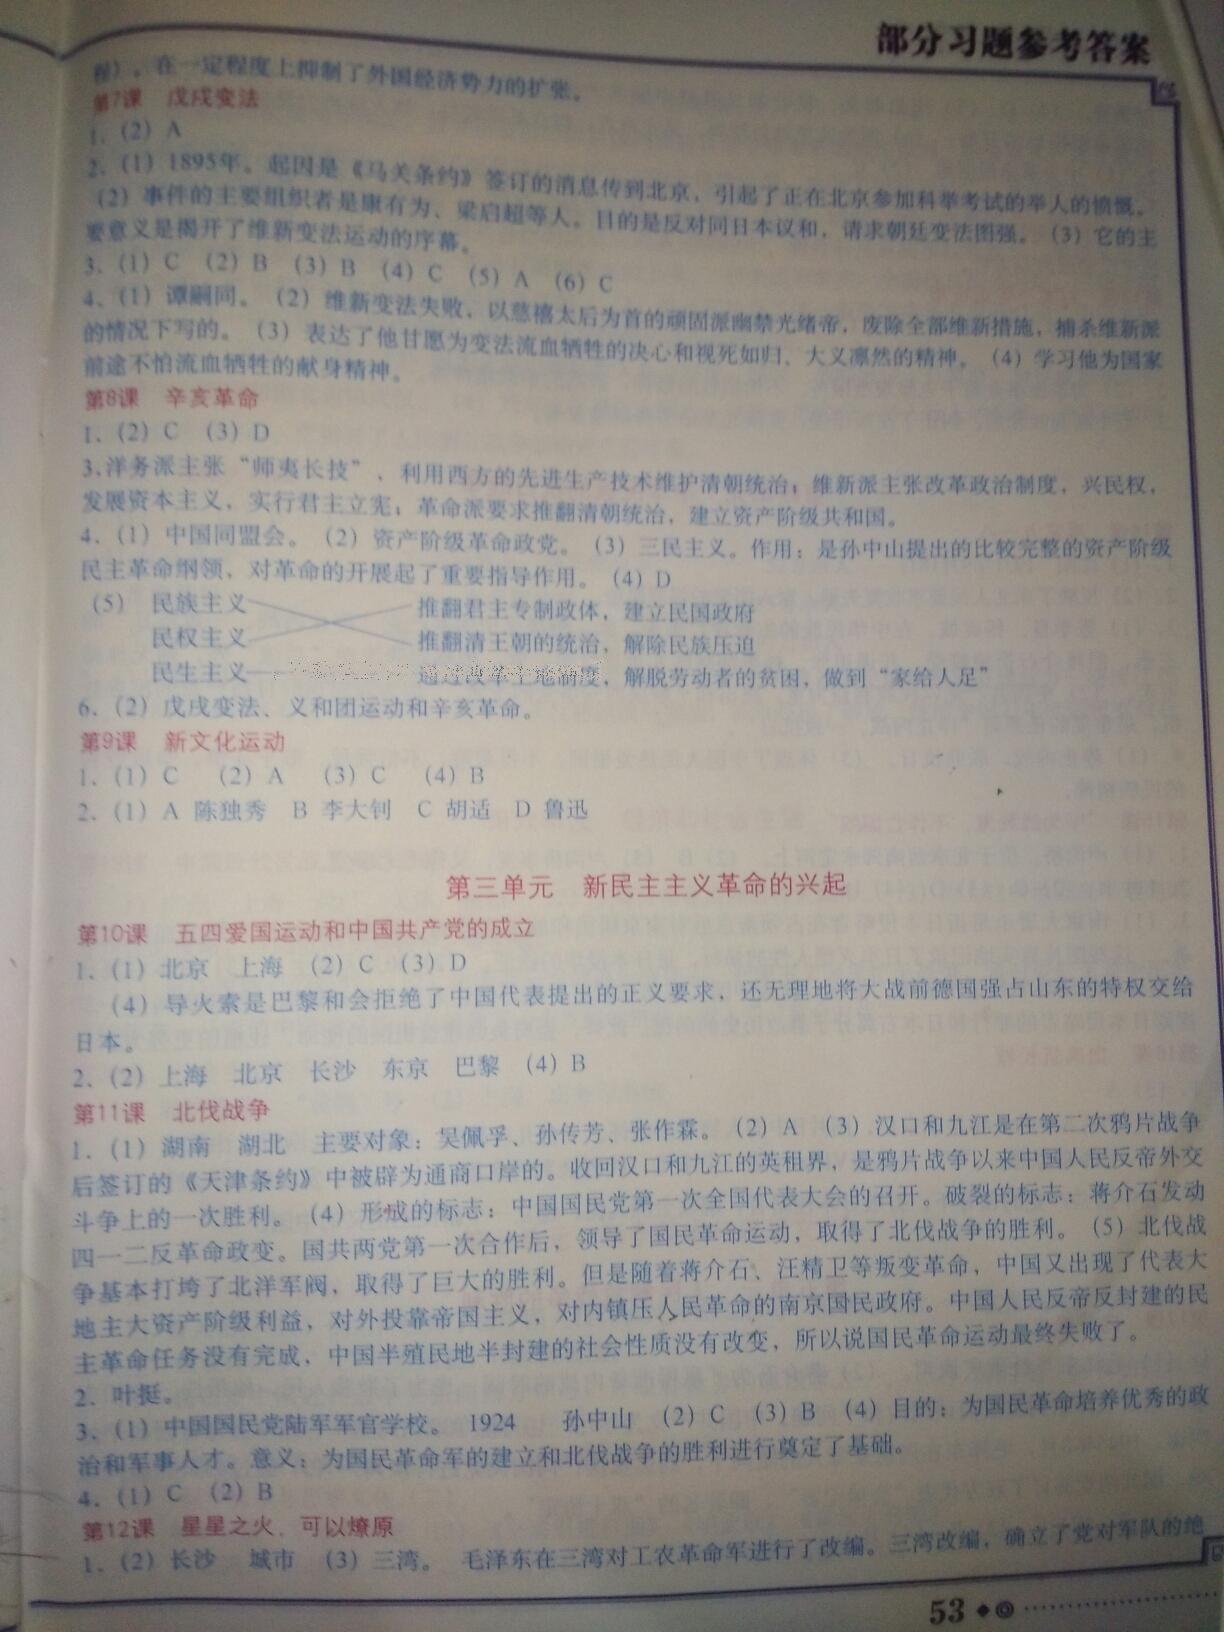 部分习题参考答案
程），在一定程度上抑制了外国经济势力的扩张。
第7课 戊戌变法
1.（2）A
2.（1）1895年。起因是《马关条约》签订的消息传到北京，引起了正在北京参加科举考试的举人的愤慨。
（2）事件的主要组织者是康有为、梁启超等人。目的是反对同日本议和，请求朝廷变法图强。（3）它的主
要意义是揭开了维新变法运动的序幕。
3.（1）C （2）B （3）B （4）C （5）A （6）C
4.（1）谭嗣同。（2）维新变法失败，以慈禧太后为首的顽固派幽禁光绪帝，废除全部维新措施，捕杀维新派
的情况下写的。（3）表达了他甘愿为变法流血牺牲的决心和视死如归、大义凛然的精神。（4）学习他为国家
前途不怕流血牺牲的献身精神。
第8课 辛亥革命
1.（2）C （3）D
3.洋务派主张“师夷长技”，利用西方的先进生产技术维护清朝统治；维新派主张改革政治制度，兴民权，
发展资本主义，实行君主立宪；革命派要求推翻清朝统治，建立资产阶级共和国。
4.（1）中国同盟会。（2）资产阶级革命政党。（3）三民主义。作用：是孙中山提出的比较完整的资产阶级
民主革命纲领，对革命的开展起了重要指导作用。（4）D
（5） 民族主义 推翻君主专制政体，建立民国政府
民权主义 推翻清王朝的统治，解除民族压迫
民生主义 通过改革土地制度，解脱劳动者的贫困，做到“家给人足”
6.（2）戊戌变法、义和团运动和辛亥革命。
第9课 新文化运动
1.（1）C （2）A （3）C （4）B
2.（1）A 陈独秀 B 李大钊 C 胡适 D 鲁迅
第三单元 新民主主义革命的兴起
第10课 五四爱国运动和中国共产党的成立
1.（1）北京 上海 （2）C （3）D
（4）导火索是巴黎和会拒绝了中国代表提出的正义要求，还无理地将大战前德国强占山东的特权交给
日本。
2.（2）上海 北京 长沙 东京 巴黎 （4）B
第11课 北伐战争
1.（1）湖南 湖北 主要对象：吴佩孚、孙传芳、张作霖。（2）A （3）汉口和九江是在第二次鸦片战争
后签订的《天津条约》中被辟为通商口岸的。收回汉口和九江的英租界，是鸦片战争以来中国人民反帝外交
斗争上的一次胜利。（4）形成的标志：中国国民党第一次全国代表大会的召开。破裂的标志：蒋介石发动
四一二反革命政变。国共两党第一次合作后，领导了国民革命运动，取得了北伐战争的胜利。（5）北伐战
争基本打垮了北洋军阀，取得了巨大的胜利。但是随着蒋介石、汪精卫等叛变革命，中国又出现了代表大
地主大资产阶级利益，对外投靠帝国主义，对内镇压人民革命的南京国民政府。中国人民反帝反封建的民
主革命任务没有完成，中国半殖民地半封建的社会性质没有改变，所以说国民革命运动最终失败了。
2. 叶挺。
3.（1）中国国民党陆军军官学校。 1924 孙中山 （2）C （3）B （4）目的：为国民革命培养优秀的政
治和军事人才。意义：为国民革命军的建立和北伐战争的胜利进行奠定了基础。
4.（1）C （2）B
第12课 星星之火，可以燎原
1.（2）长沙 城市 （3）三湾。 毛泽东在三湾对工农革命军进行了改编。三湾改编，确立了党对军队的绝
53